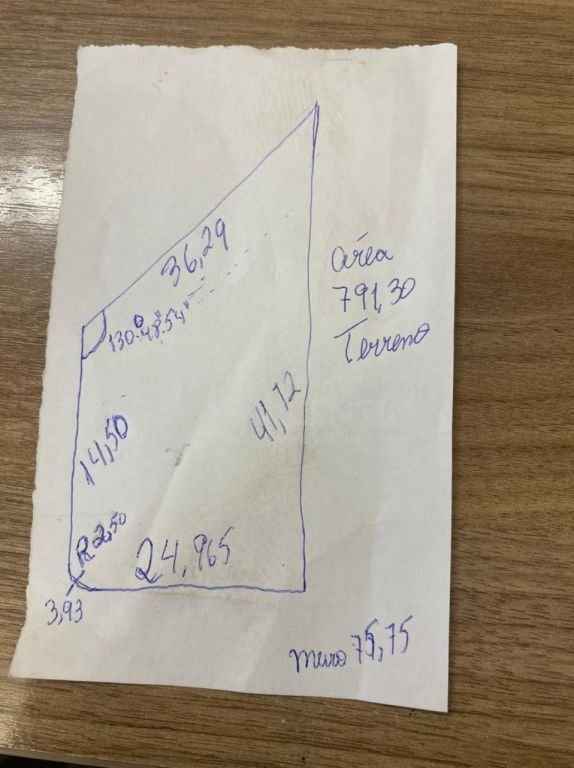 36,29
130°48'54"
área
791,30
Terreno
14,50
41,72
R 2,50
24,965
3,93
muro 75,75